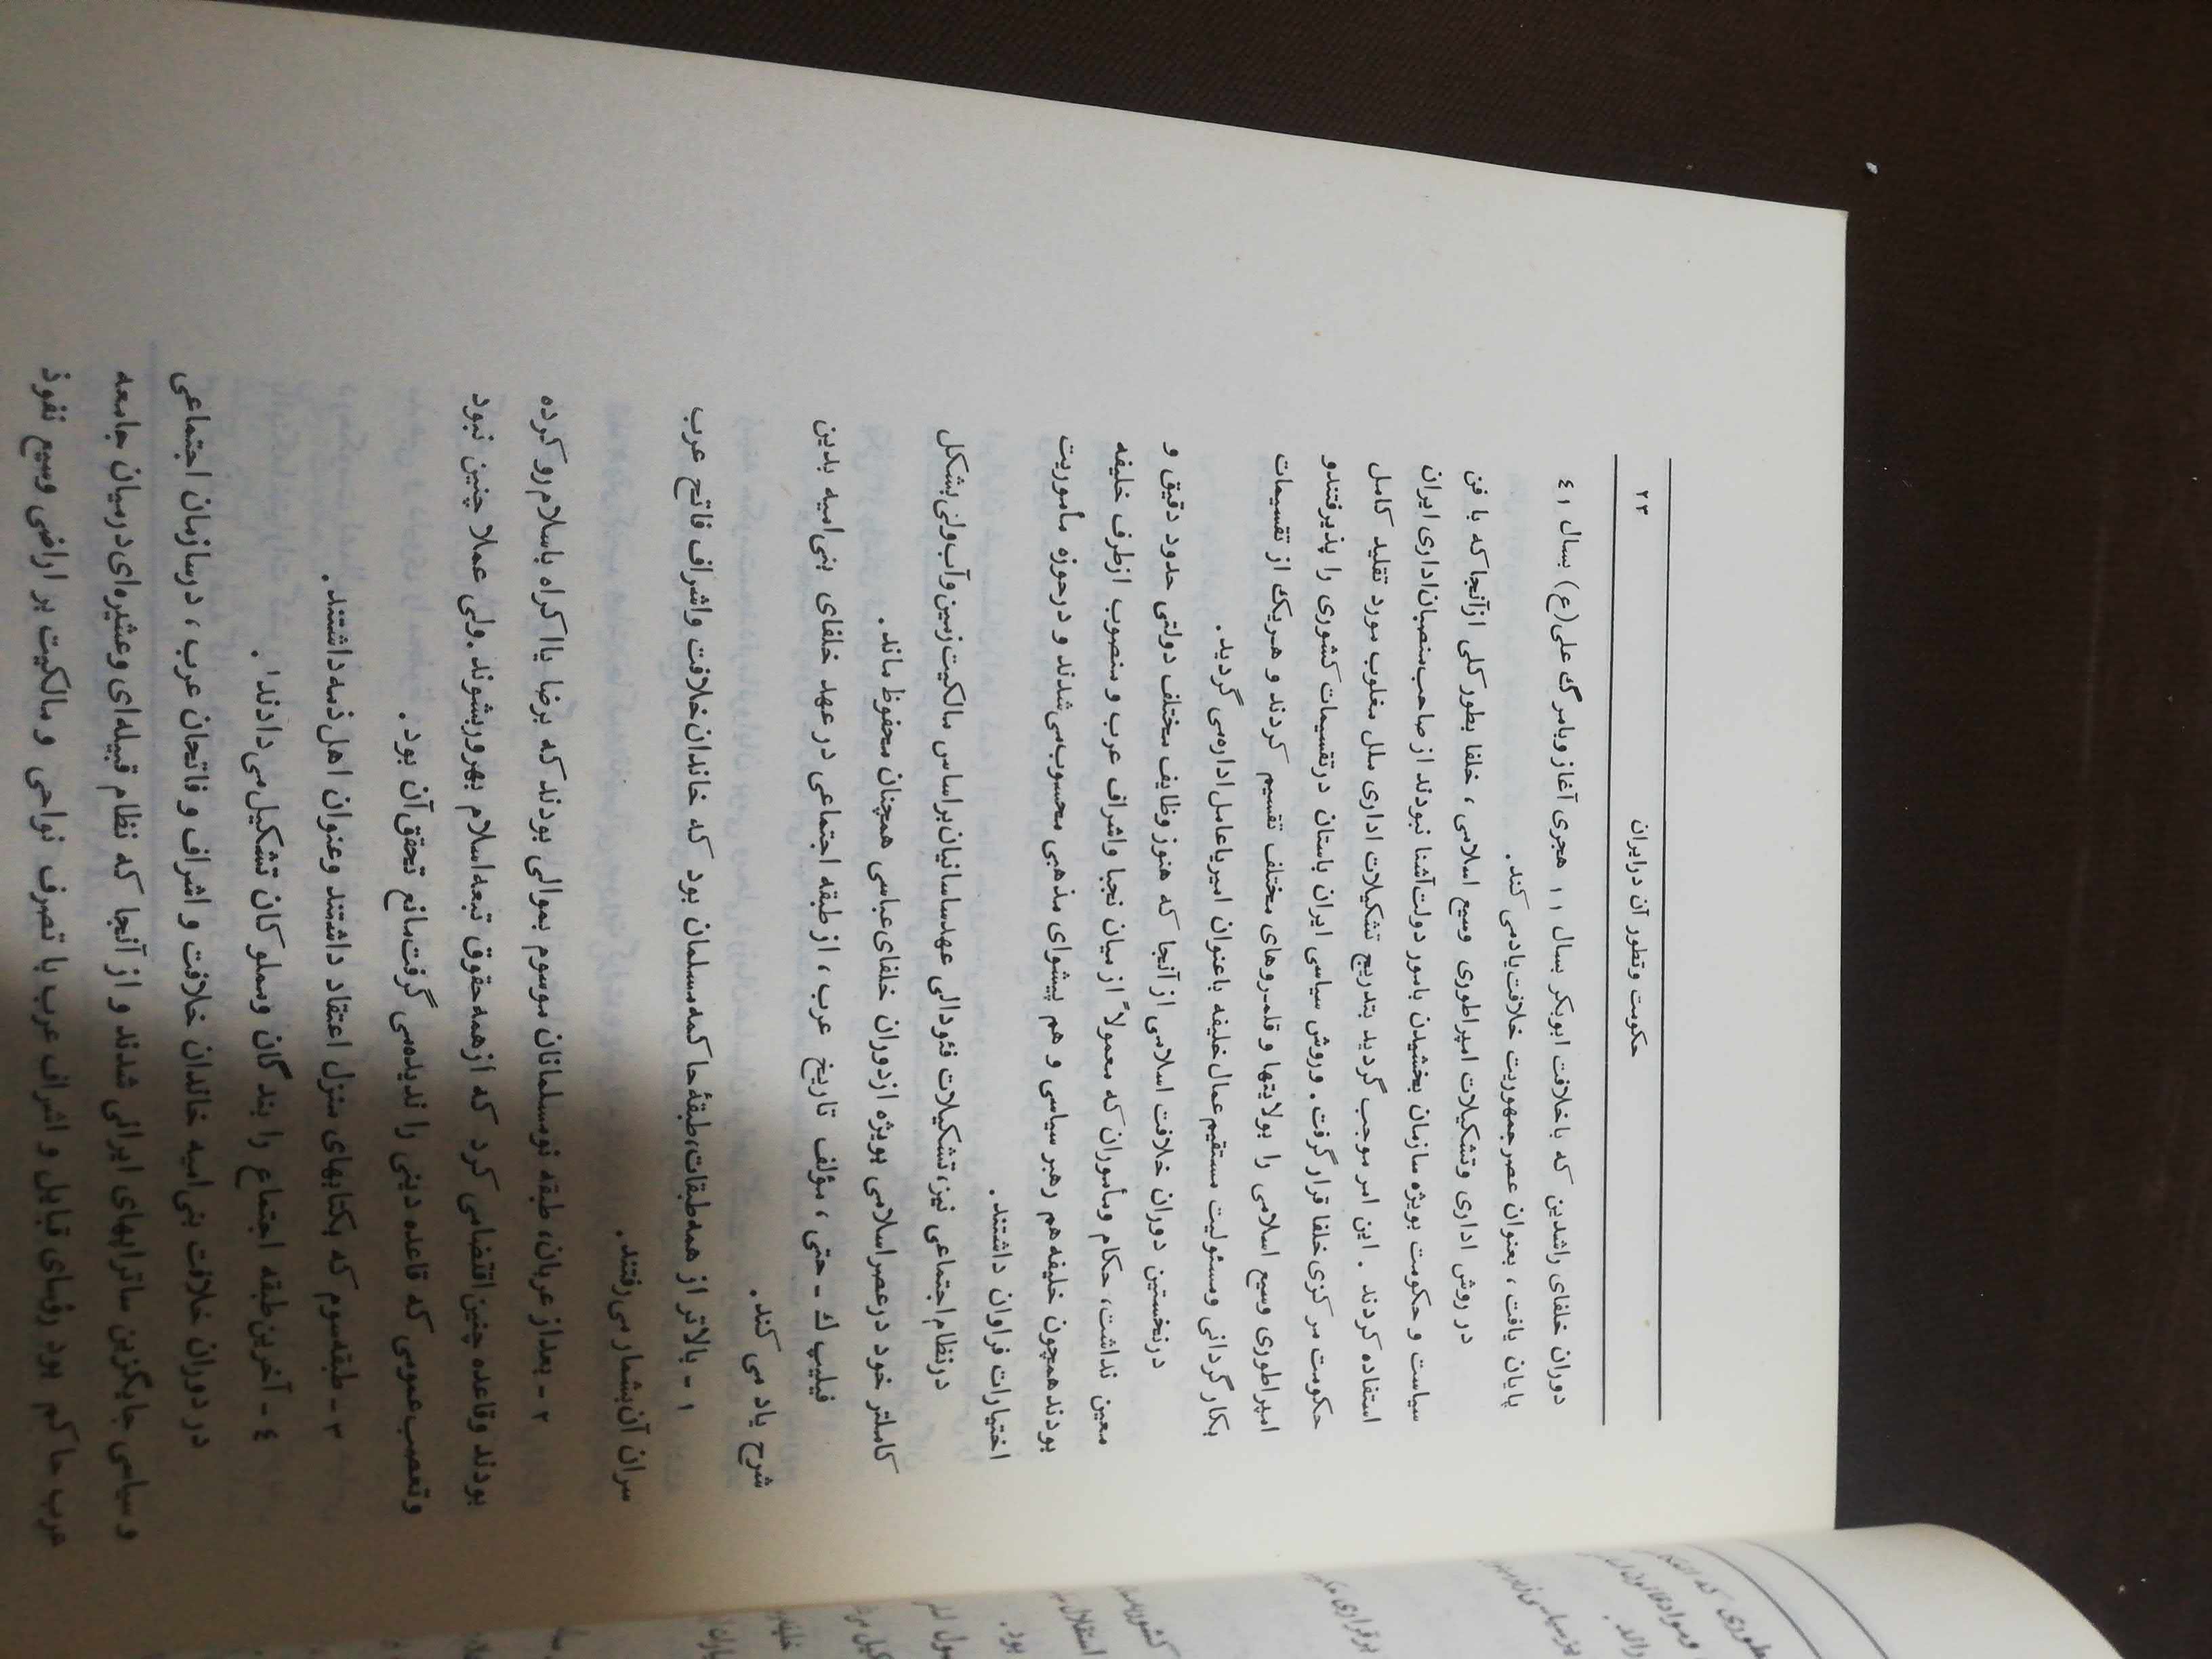 حکومت وتطور آن درایران
۲۳
دوران خلفای راشدین که باخلافت ابوبکر بسال ۱۱ هجری آغاز وبامرگ علی(ع) بسال ٤١
پایان یافت، بعنوان عصرجمهوریت خلافت‌یادمی کند.
در روش اداری وتشکیلات امپراطوری وسیع اسلامی، خلفا بطور کلی ازآنجا که با فن
سیاست و حکومت بویژه سازمان بخشیدن بامور دولت‌آشنا نبودند از صاحب‌منصبان‌اداری ایران
استفاده کردند . این امر موجب گردید بتدریج تشکیلات اداری ملل مغلوب مورد تقلید کامل
حکومت مرکزی‌خلفا قرار گرفت. وروش سیاسی ایران باستان درتقسیمات کشوری را پذیرفتندو
امپراطوری وسیع اسلامی را بولایتها و قلمروهای مختلف تقسیم کردند و هریک از تقسیمات
بکار گردانی ومسئولیت مستقیم‌عمال‌خلیفه باعنوان امیریاعامل‌اداره‌می گردید.
درنخستین دوران خلافت اسلامی از آنجا که هنوز وظایف مختلف دولتی حدود دقیق و
معین نداشت، حکام ومأموران که معمولاً از میان نجبا واشراف عرب و منصوب ازطرف خلیفه
بودندهمچون خلیفه هم رهبر سیاسی و هم پیشوای مذهبی محسوب‌می‌شدند و درحوزه مأموریت
اختیارات فراوان داشتند.
درنظام‌اجتماعی نیز، تشکیلات فئودالی عهدساسانیان‌براساس مالکیت‌زمین‌وآب‌ولی‌بشکل
کاملتر خود درعصراسلامی بویژه ازدوران خلفای‌عباسی همچنان محفوظ ماند.
فیلیپ ك ـ حتی ، مؤلف تاریخ عرب ، از طبقه اجتماعی درعهد خلفای بنی‌امیه بدین
شرح یاد می کند.
۱ - بالاتر از همه‌طبقات، طبقهٔ‌حاکمه‌مسلمان بود که خاندان‌خلافت واشراف فاتح عرب
سران آن‌بشمار می‌رفتند.
۲ - بعداز عربان، طبقه نومسلمانان موسوم بموالی بودند که برضا یااکراه باسلام‌رو کرده
بودند وقاعده چنین‌اقتضامی کرد که ازهمه‌حقوق تبعه‌اسلام بهره‌وربشوند . ولی عملا چنین نبود
وتعصب‌عمومی که قاعده دینی را ندیده‌می گرفت‌مانع تحقق‌آن بود.
۳ - طبقه‌سوم که بکتابهای منزل اعتقاد داشتند وعنوان اهل‌ذمه‌داشتند.
٤ - آخرین‌طبقه اجتماع را بندگان ومملوکان تشکیل‌می‌دادند۱.
در دوران خلافت بنی‌امیه خاندان خلافت و اشراف و فاتحان عرب، درسازمان اجتماعی
وسیاسی جایگزین ساتراپهای ایرانی شدند و از آنجا که نظام قبیله‌ای وعشیره‌ای‌درمیان جامعه
عرب حاکم بود رؤسای قبایل و اشراف عرب با تصرف نواحی و مالکیت بر اراضی وسیع نفوذ